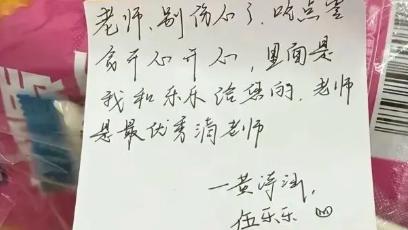 老师、别伤心了.吃点零
食开心开心,里面是
我和乐乐给您的.老师
是最优秀滴老师
一黄诗涵,
伍乐乐